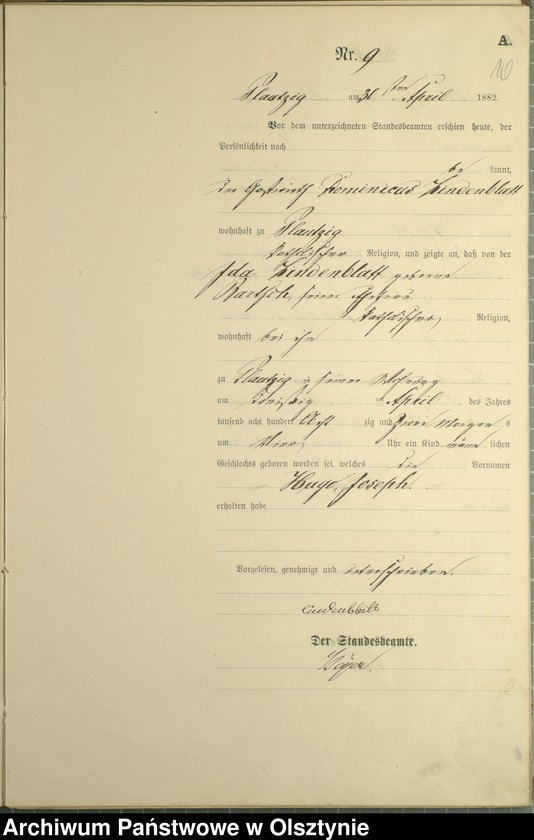 A.
Nr. 9
10
Plautzig am 30 ten April 1882.
Vor dem unterzeichneten Standesbeamten erschien heute, der
Persönlichkeit nach
be kannt,
der Gastwirth Dominicus Lindenblatt
wohnhaft zu Plautzig
katholischer Religion, und zeigte an, daß von der
Ida Lindenblatt geborene
Bartsch, seiner Ehefrau
katholischer Religion,
wohnhaft bei ihm
zu Plautzig in seiner Wohnung
am April des Jahres
tausend acht hundert Acht zig und zwei Morgens
um Vier Uhr ein Kind männ lichen
Geschlechts geboren worden sei, welches die Vornamen
Hugo, Joseph.
erhalten habe
Vorgelesen, genehmigt und unterschrieben.
Lindenblatt
Der Standesbeamte.
Archiwum Państwowe w Olsztynie